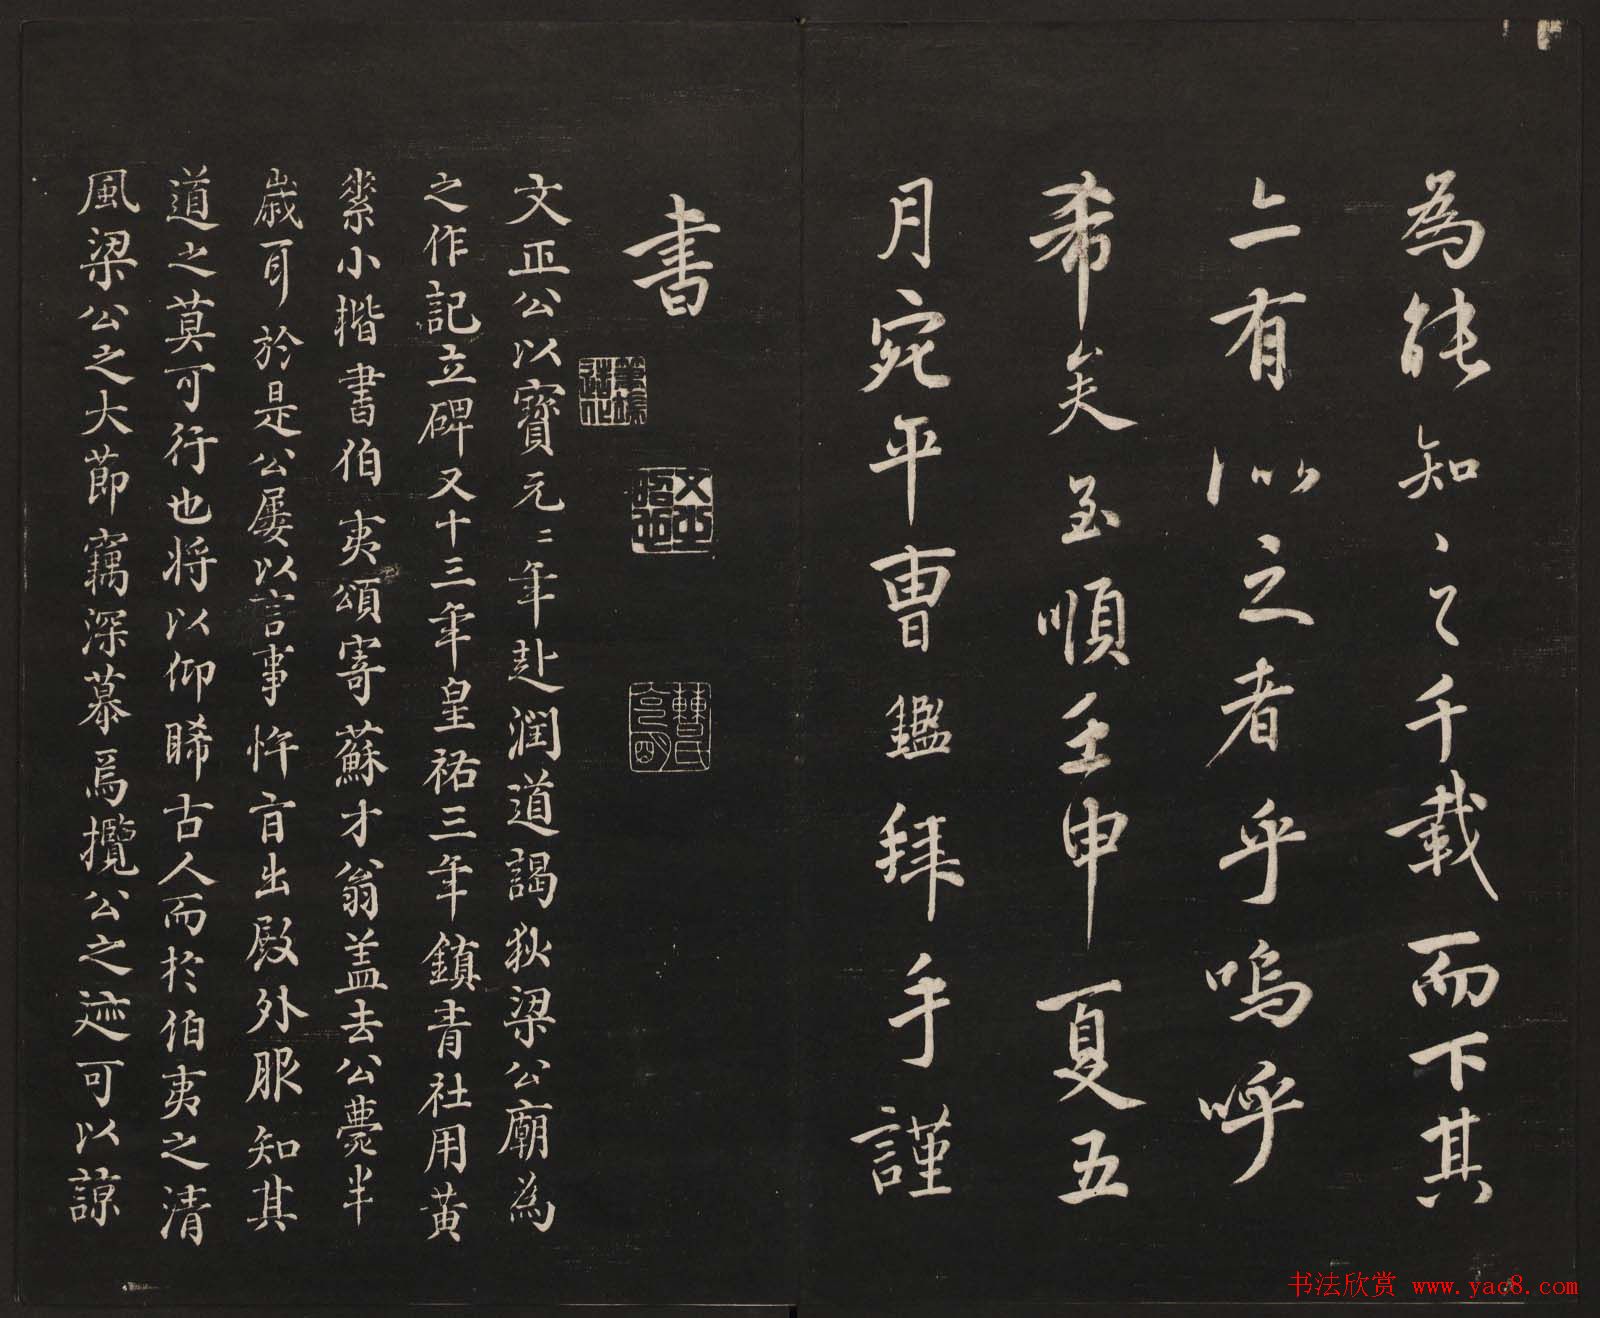 為能知之之千載而下其
亦有似之者乎嗚呼
希矣至順壬申夏五
月宛平曹鑑拜手謹
書
文正公以寶元二年赴潤道謁狄梁公廟為
之作記立碑又十三年皇祐三年鎮青社用黃
素小楷書伯夷頌寄蘇才翁盖去公薨半
歲耳於是公屢以言事忤旨出殿外服知其
道之莫可行也将以仰睎古人而於伯夷之清
風梁公之大節竊深慕焉攬公之迹可以諒
曹氏
书法欣赏 www.yac8.com